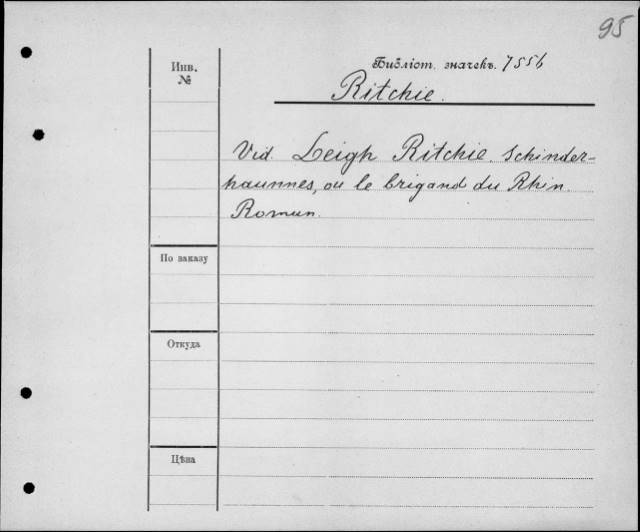 95
Библіот. значекъ. 7556
Ritchie.
Инв.
№
Vid. Leigh Ritchie. Schinder-
haunnes, ou le brigand du Rhin.
Romun.
По заказу
Откуда
Цѣна